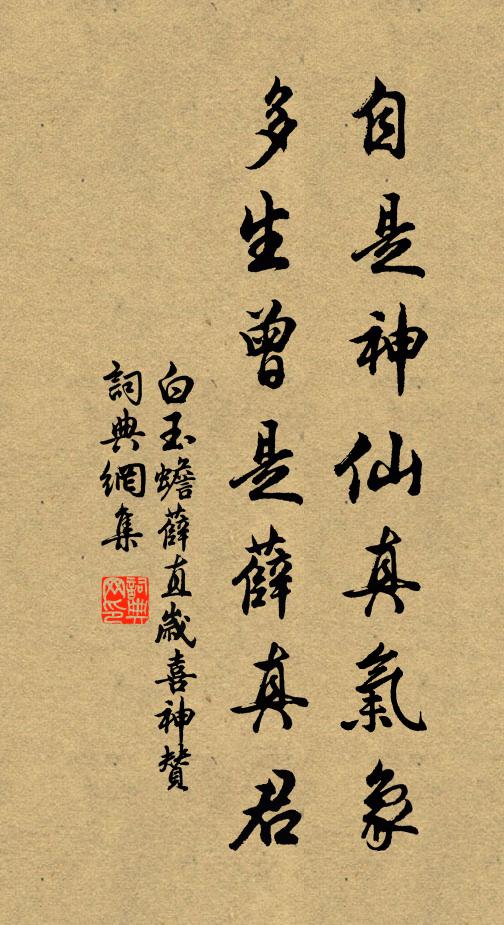 自是神仙真氣象
多生曾是薛真君
白玉蟾薛直歲喜神贊
詞典網集
詞典
网印